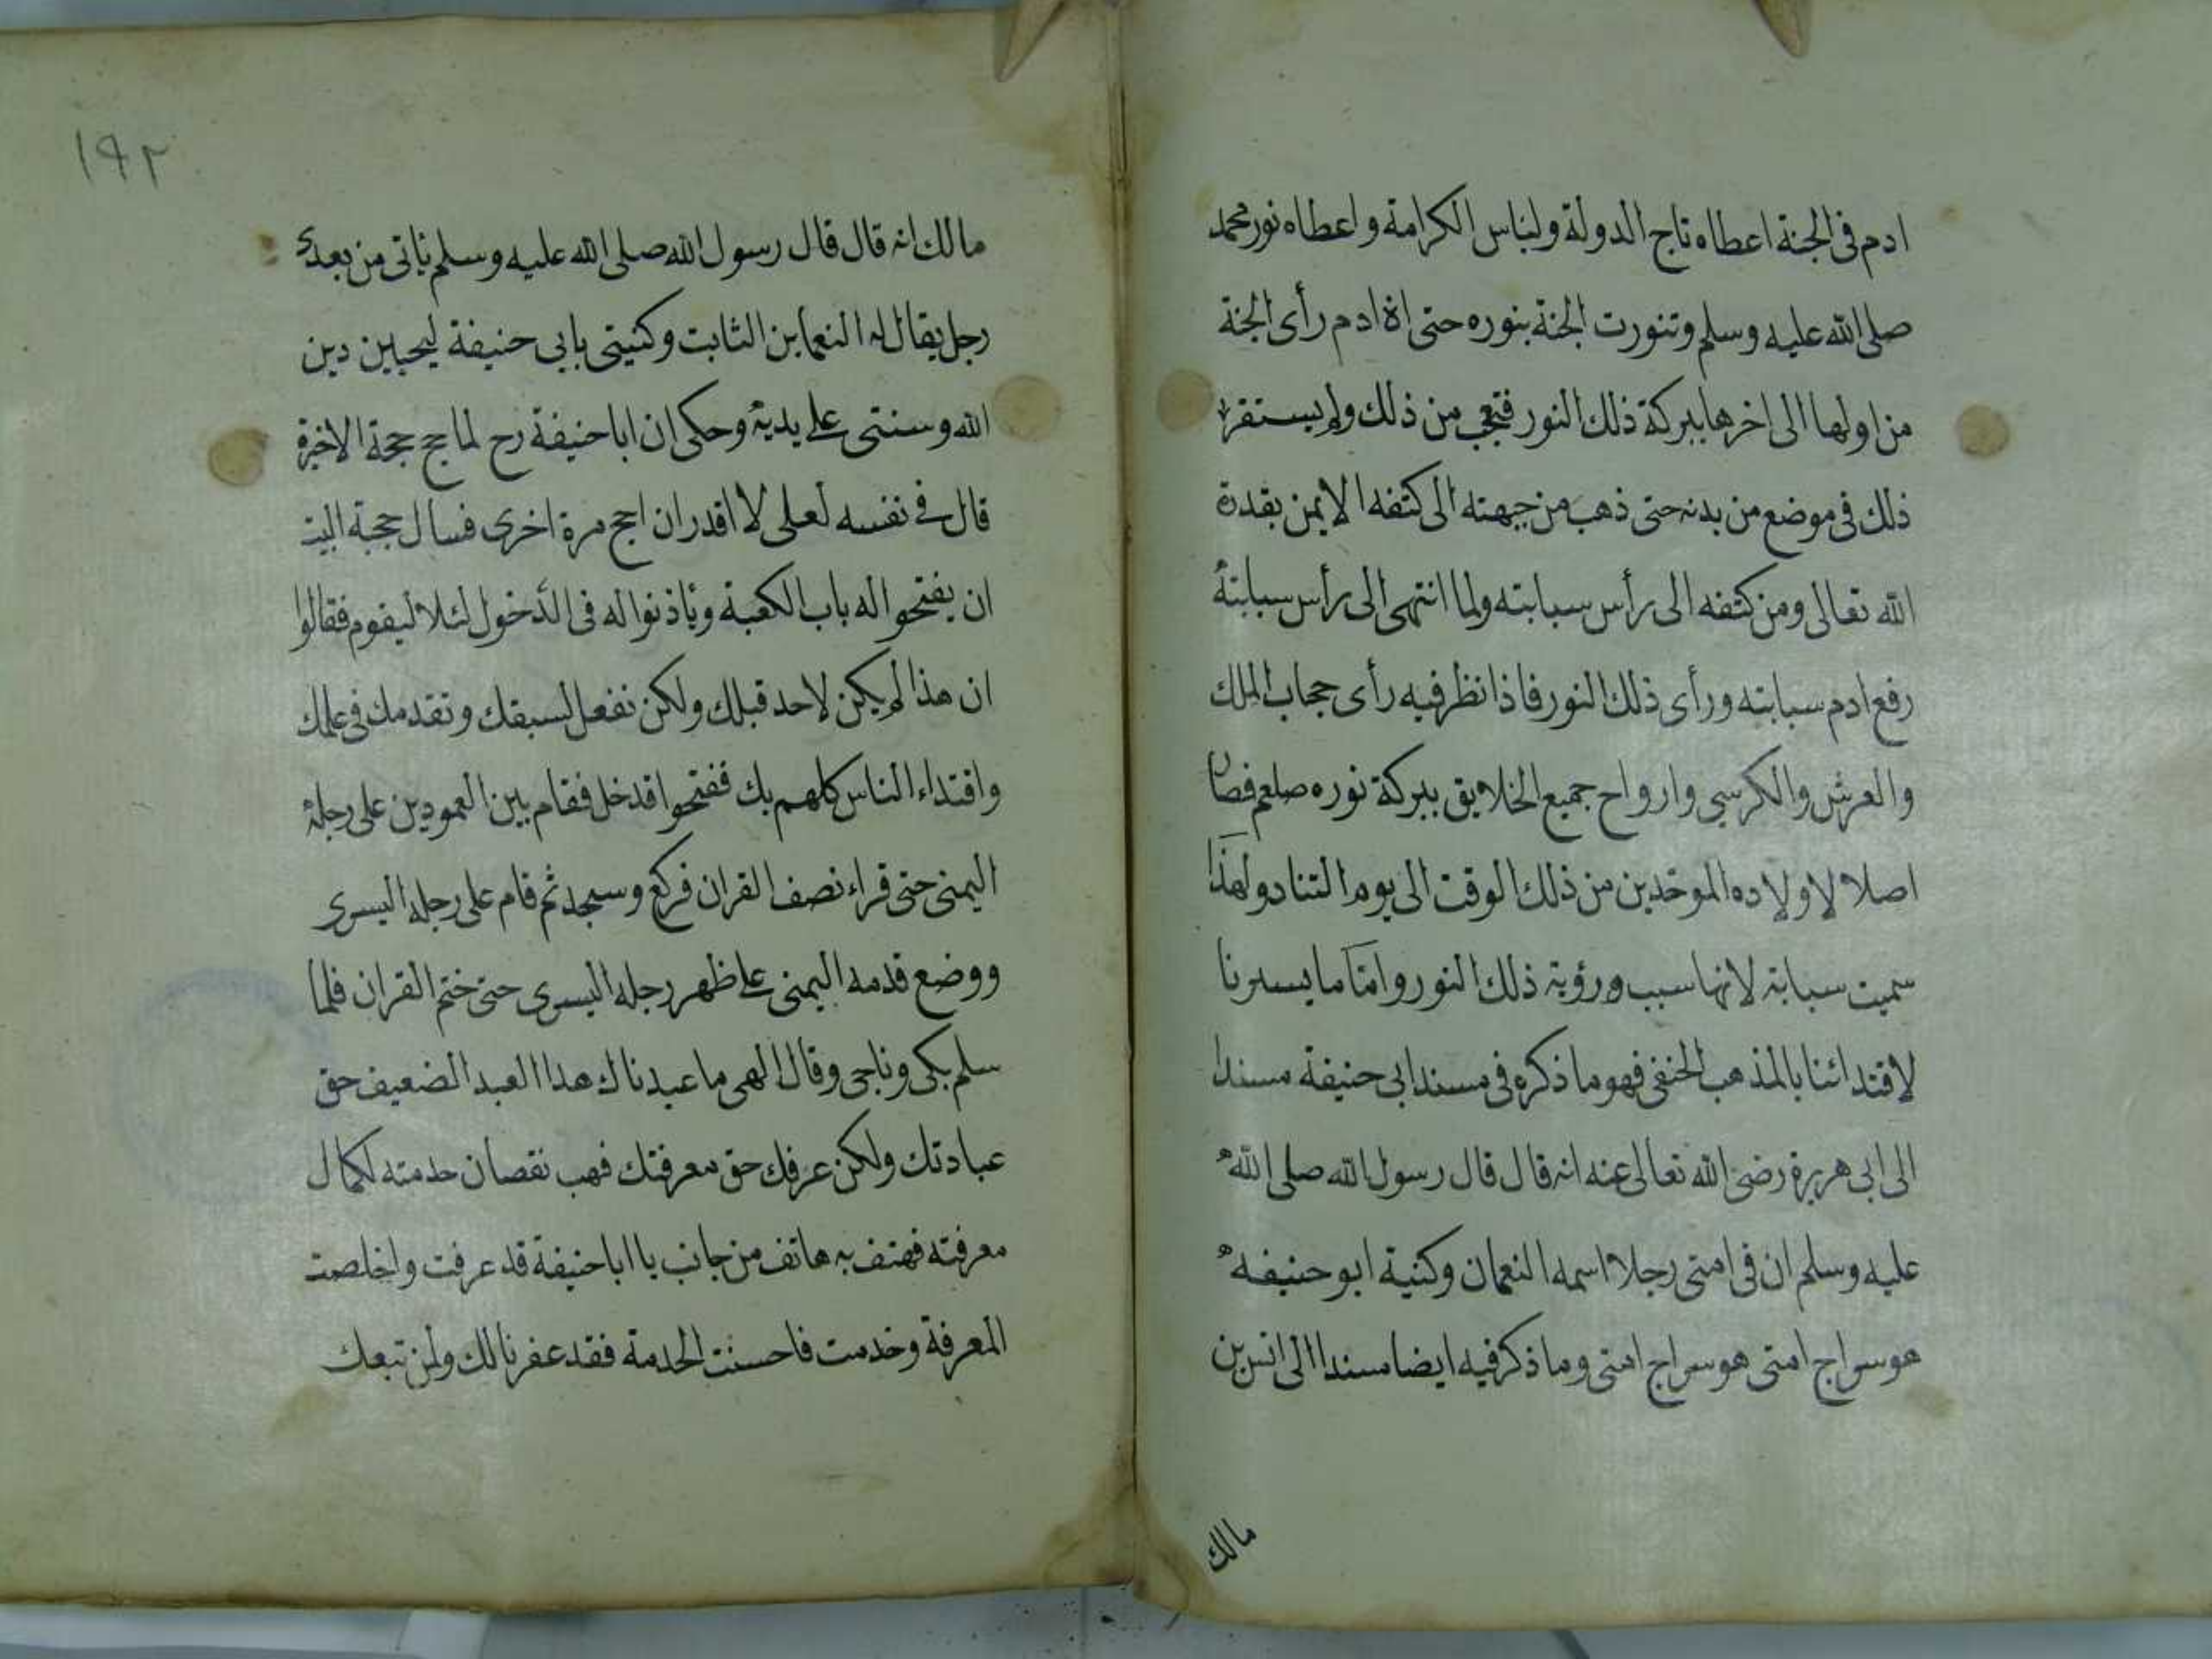 ادم فى الجنة اعطاه تاج الدولة ولباس الكرامة واعطاه نور محمد
صلى الله عليه وسلم وتنورت الجنة بنوره حتى اذ ادم رأى الجنة
من اولها الى اخرها ببركة ذلك النور فتعجب من ذلك ولم يستقر
ذلك فى موضع من بدنه حتى ذهب من جبهته الى كتفه الايمن بقدرة
الله تعالى ومن كتفه الى رأس سبابته ولما انتهى الى رأس سبابته
رفع ادم سبابته ورأى ذلك النور فاذا نظر فيه رأى حجاب الملك
والعرش والكرسي وارواح جميع الخلايق ببركة نوره صلعم فصار
اصلا لاولاده الموحدين من ذلك الوقت الى يوم التناد ولهذا
سميت سبابة لانها سبب ورؤية ذلك النور واما ما يسرنا
لاقتدائنا بالمذهب الحنفى فهو ما ذكره فى مسند ابى حنيفة مسندا
الى ابى هريرة رضى الله تعالى عنه انه قال قال رسول الله صلى الله
عليه وسلم ان فى امتى رجلا اسمه النعمان وكنية ابو حنيفه
هو سراج امتى هو سراج امتى وما ذكر فيه ايضا مسندا الى انس بن
مالك
١٩٢
مالك انه قال قال رسول الله صلى الله عليه وسلم يأتى من بعدى
رجل يقال له النعمابن الثابت وكنيتى بابى حنيفة ليحيين دين
الله وسنتى على يديه وحكى ان ابا حنيفة رح لما حج حجة الاخيرة
قال فى نفسه لعلى لا اقدر ان احج مرة اخرى فسال حجبة البيت
ان يفتحوا له باب الكعبة وياذنوا له فى الدخول لئلا ليقوم فقالوا
ان هذا لم يكن لاحد قبلك ولكن نفعل لسبقك وتقدمك فى علمك
واقتداء الناس كلهم بك ففتحوا قدخل فقام بين العمودين على رجله
اليمنى حتى قراء نصف القران فركع وسجد ثم قام على رجله اليسرى
ووضع قدمه اليمنى على ظهر رجله اليسرى حتى ختم القران فلما
سلم بكى وناجى وقال الهى ما عبدناك هذا العبد الضعيف حق
عبادتك ولكن عرفك حق معرفتك فهب نقصان خدمته لكمال
معرفته فهتف به هاتف من جانب يا ابا حنيفة قد عرفت واخلصت
المعرفة وخدمت فاحسنت الخدمة فقد غفرنا لك ولمن تبعك